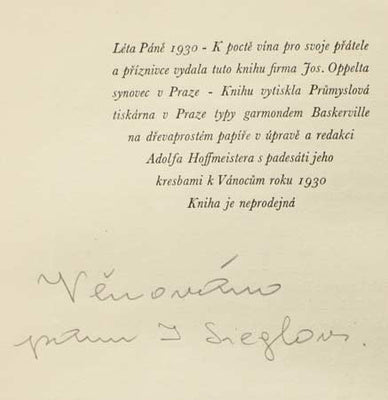 Léta Páně 1930 - K poctě vína pro svoje přátele
a příznivce vydala tuto knihu firma Jos. Oppelta
synovec v Praze - Knihu vytiskla Průmyslová
tiskárna v Praze typy garmondem Baskerville
na dřevaprostém papíře v úpravě a redakci
Adolfa Hoffmeistera s padesáti jeho
kresbami k Vánocům roku 1930
Kniha je neprodejná
Věnováno
panu J Sieglovi.